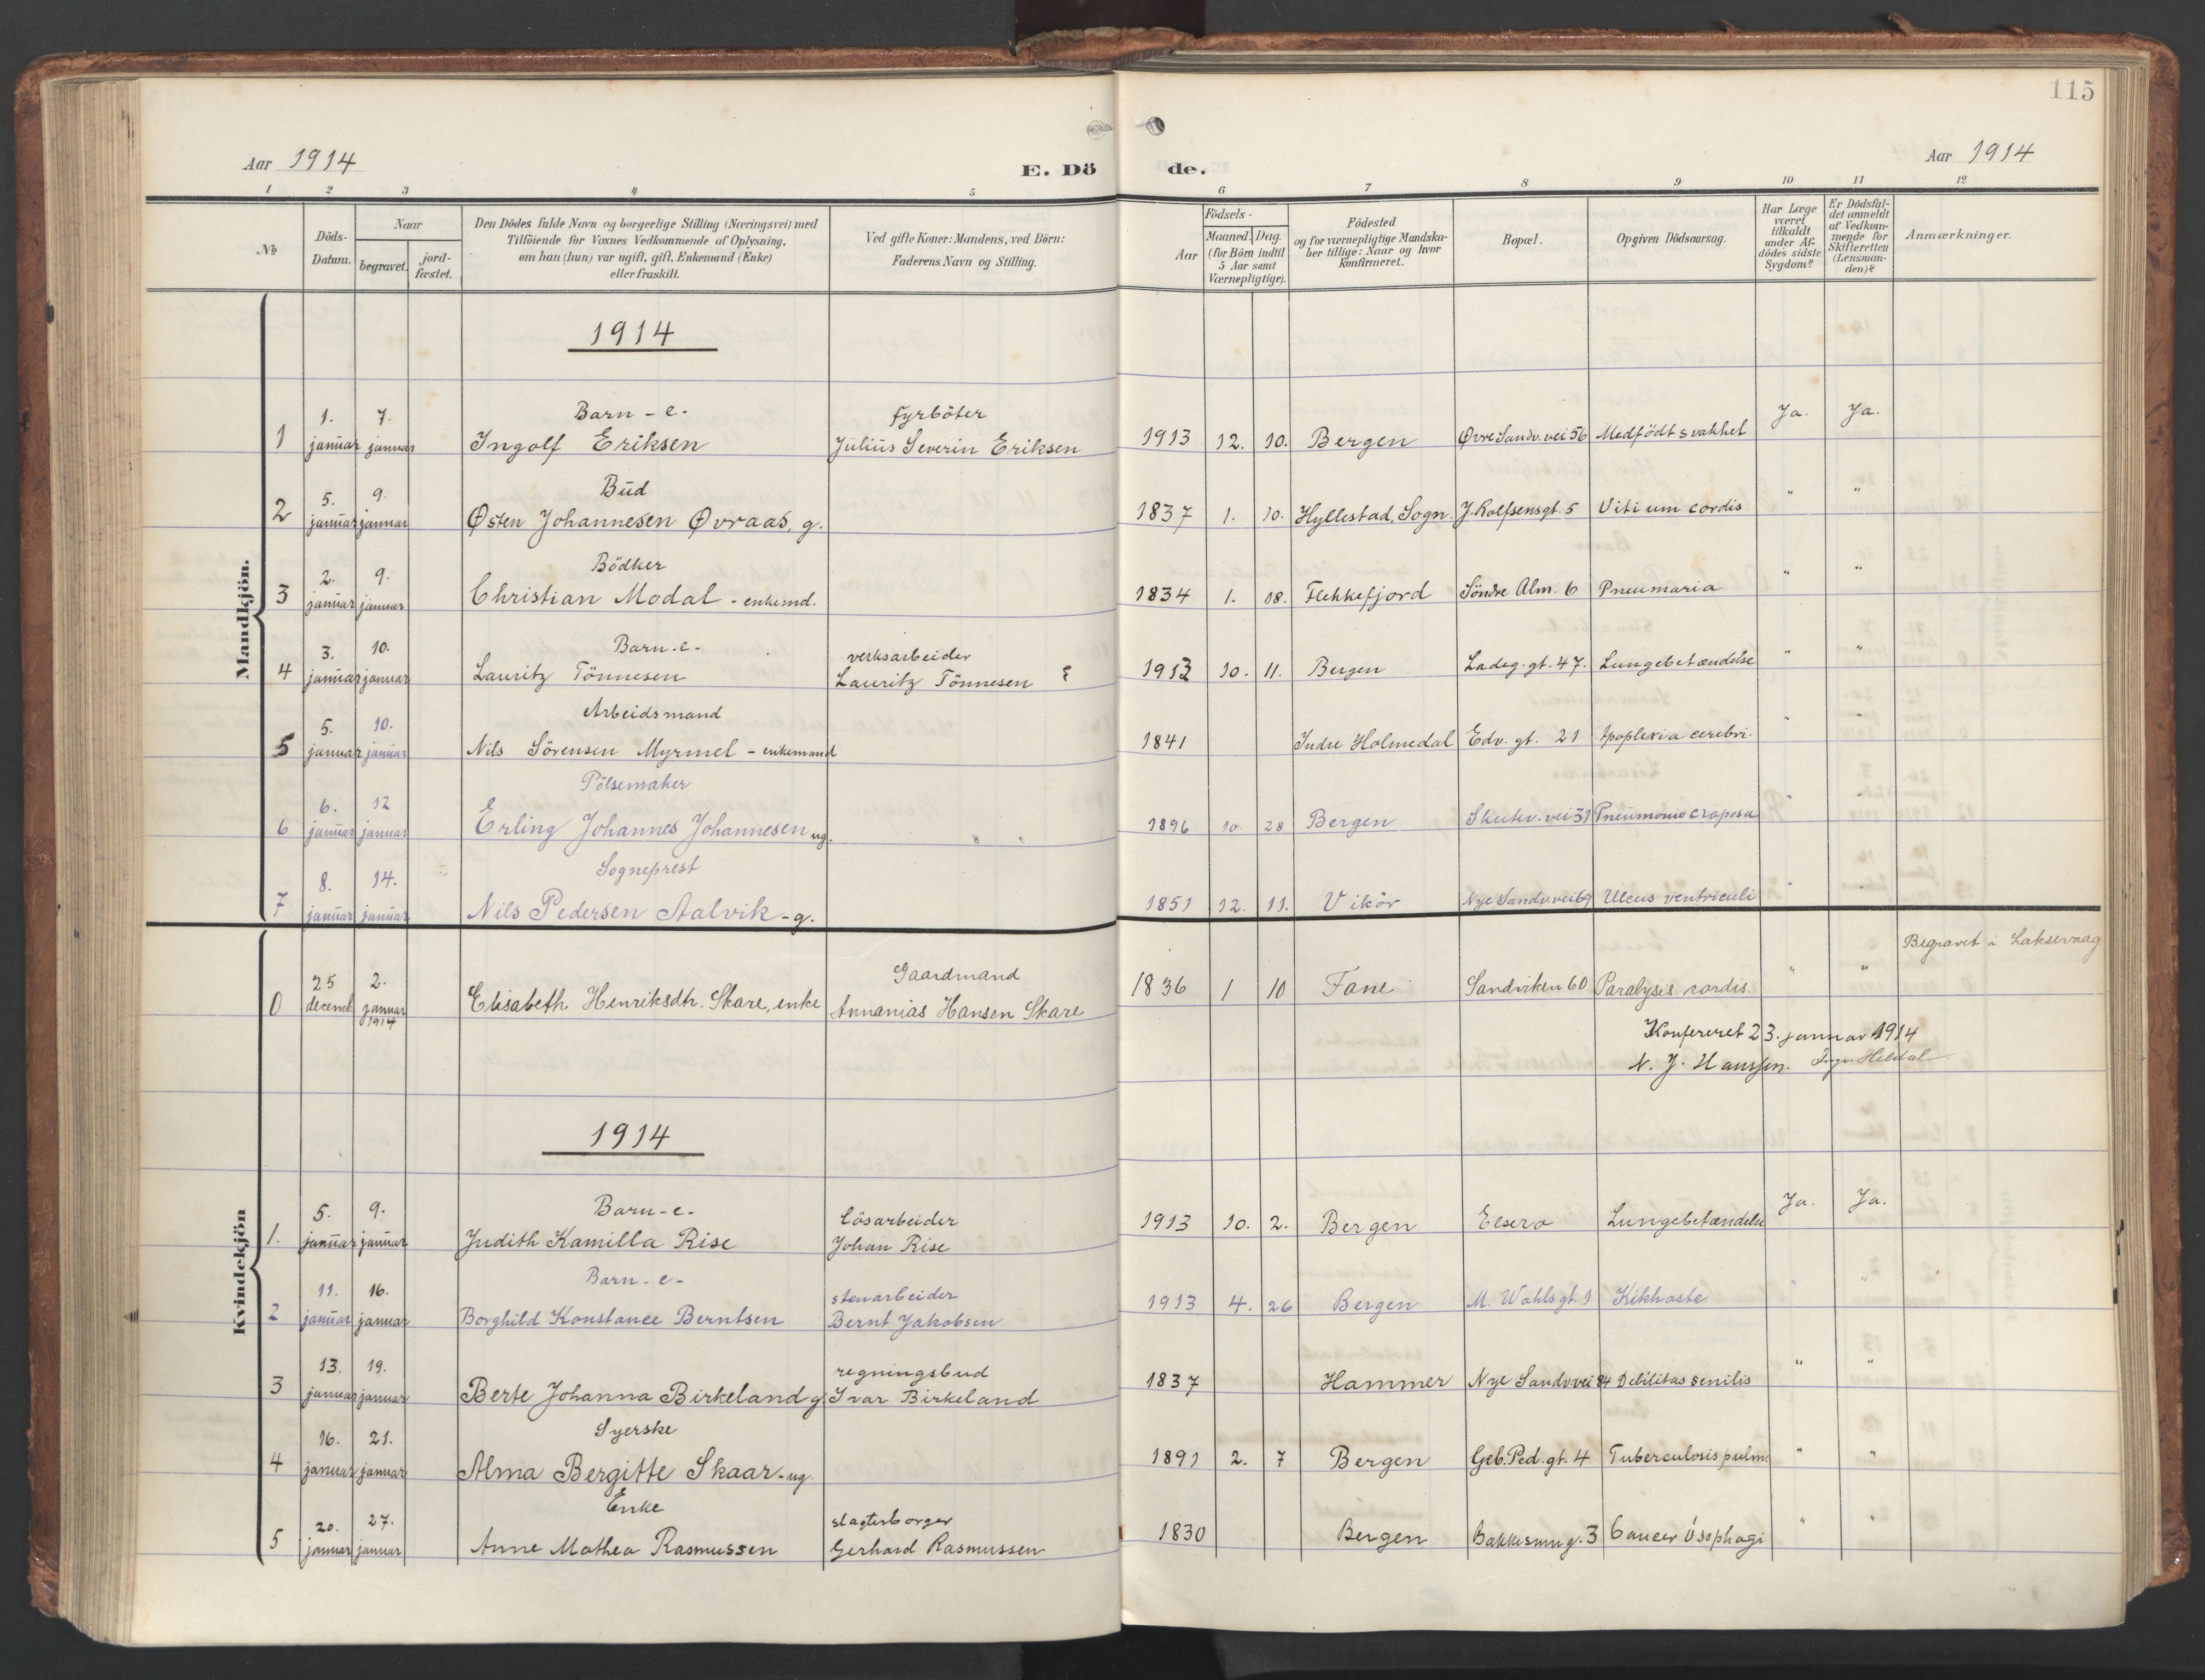 115
Aar 1914
E. Döde.
Aar 1914
1 2 3 4 5 6 7 8 9 10 11 12
No
Döds-Datum.
Naar
begravet.
jord-fæstet.
Den Dödes fulde Navn og borgerlige Stilling (Næringsvei) med
Tilföiende for Voxnes Vedkommende af Oplysning,
om han (hun) var ugift, gift, Enkemand (Enke)
eller fraskilt.
Ved gifte Koner: Mandens, ved Börn:
Faderens Navn og Stilling.
Födsels-
Aar
Maaned. Dag.
(for Börn indtil
5 Aar samt
Værnepligtige).
Födested
og for værnepligtige Mandska-
ber tillige: Naar og hvor
konfirmeret.
Bopæl.
Opgiven Dödsaarsag.
Har Læge
været
tilkaldt
under Af-
dödes sidste
Sygdom?
Er Dödsfal-
det anmeldt
af Vedkom-
mende for
Skifteretten
(Lensman-
den)?
Anmærkninger.
Mandkjön.
1914
1. 7. Barn - e. fyrböter Ja. Ja.
1 januar januar Ingolf Eriksen Julius Severin Eriksen 1913 12. 10. Bergen Øvre Sandv. vei 56 Medfödt svakhet
5. 9. Bud " "
2 januar januar Østen Johannesen Øvraas, g. 1837 1. 10. Hyllestad, Sogn. J. Rolfsensgt. 5 Vitium cordis
2. 9. Bödker " "
3 januar januar Christian Modal - enkemd. 1834 1. 18. Flekkefjord Söndre Alm. 6 Pneumaria
3. 10. Barn - e - verksarbeider " "
4 januar januar Lauritz Tönnesen Lauritz Tönnesen 1913 10. 11. Bergen Ladeg. gt. 47. Lungebetændelse
5. 10. Arbeidsmand " "
5 januar januar Nils Sörensen Myrmel - enkemand 1841 Indre Holmedal Edv. gt. 21 Apoplexia cerebri.
6. 12 Pölsemaker " "
6 januar januar Erling Johannes Johannesen ug. " " 1896 10. 28 Bergen Skutev. vei 31 Pneumonio croposa
8. 14. Sogneprest " "
7 januar januar Nils Pedersen Aalvik - g. 1851 12. 11. Vikör Nye Sandv. vei 69 Ulcus ventriculi
Begravet i Laksevaag
25 2. Gaardmand " "
0 decemb. januar 1914 Elisabeth Henriksdtr. Skare, enke Annanias Hansen Skare 1836 1 10 Fane Sandviken 60 Paralysis cordis.
Konfereret 23. januar 1914
N. J. Hanssen. Ingv. Heldal
Kvindekjön
1914
5. 9. Barn - e - lösarbeider Ja. Ja.
1. januar januar Judith Kamilla Rise Johan Rise 1913 10. 2. Bergen Elsero Lungebetændelse
11. 16. Barn - e - stenarbeider " "
2 januar januar Borghild Konstance Berntsen Bernt Jakobsen 1913 4. 26 Bergen M. Wahlsgt. 1 Kikhoste
13. 19. regningsbud " "
3 januar januar Berte Johanna Birkeland g. Ivar Birkeland 1837 Hammer Nye Sandv vei 84 Debilitas senilis
16. 21. Syerske " "
4 januar januar Alma Bergitte Skaar - ug. 1891 2. 7 Bergen Geb. Ped. gt. 4 Tuberculosis pulm.
20. 27. Enke slagterborger " "
5 januar januar Anne Mathea Rasmussen Gerhard Rasmussen 1830 Bergen Bakkesmug. 3 Cancer ösophagi